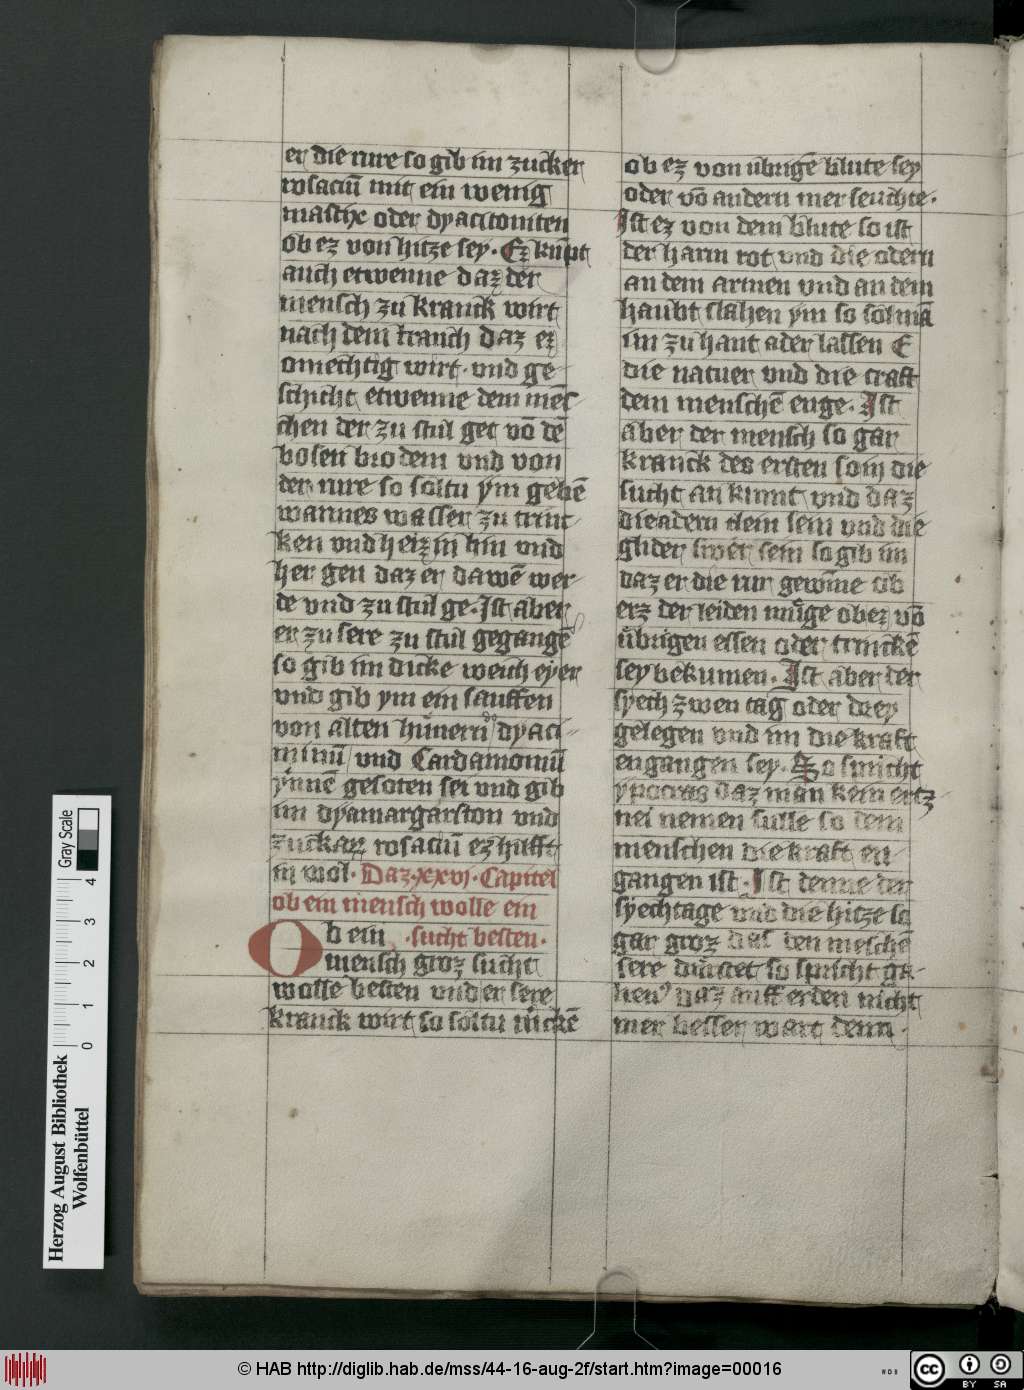 er die rure so gib im zucker
rosaciu̅ mit ein wenig
mastix oder dyacitomiten
ob ez von hitze sey · Ez kupt
auch etwenne daz der
mensch zu kranck wirt
nach dem tranck daz er
omechtig wirt · vnd ge
schicht etwenne dem me̅s
chen der zu stul get vo̅ de̅
bosen brodem vnd von
der rure so soltu ym gebe̅
warmes wasser zu trin
ken vnd heiz in hin vnd
her gen daz er dawe̅ wer
de vnd zu stul ge · Ist aber
er zu sere zu stul gegange̅
so gib im dicke weich eyer
vnd gib ym ein sauffen
von alten hu̇nern dyaci
minu̅ vnd Cardamomu̅
ynne̅ gesoten sei vnd gib
im dyamargariton vnd
zuckar rosaciu̅ ez hilfft
in wol · Daz · xxvj · Capitel
ob ein mensch wolle ein
· sucht besten ·
Ob ein
mensch groz sucht
wolle besten vnd er sere
kranck wirt so soltu mercke̅
ob ez von u̇brige̅ blute sey
oder vo̅ andern mer feuchte ·
Ist ez von dem blute so ist
der harm rot vnd die odern
an dem armen vnd an dem
haubt slahen ym so sol ma̅
im zu hant ader lassen E
die natuer vnd die craft
dem mensche̅ enge · Ist
aber der mensch so gar
kranck des ersten so in die
sucht an kumt vnd daz
die adern clein sein vnd die
glider swer sein so gib im
daz er die rur gewinne ob
erz der leiden mu̇ge ob ez vo̅
u̇brigen essen oder trincke̅
sey bekumen · Ist aber der
syech zwen tag oder drey
gelegen vnd im die kraft
engangen sey · So spricht
ypocras daz man kein ertz
nei nemen sulle so dem
menschen die kraft en
gangen ist · Ist denne der
syechtage vnd die hitze so
gar groz daz den mesche̅
sere du̇rstet so spricht ga
lien' daz auff erden nicht
mer besser wart denn ·
Herzog August Bibliothek
Wolfenbüttel
Gray Scale
0 1 2 3 4
© HAB http://diglib.hab.de/mss/44-16-aug-2f/start.htm?image=00016
WDB
cc BY SA